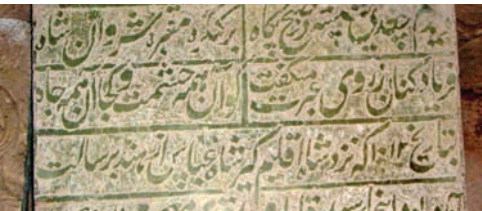 دیدم چغدی نشسته در صبح پگاه بر کنگره مقبره شروان شاه
فریاد کنان ز روی عبرت میگفت کو آن همه حشمت و کجا آن همه جاه
بتاریخ ۱۰۱۲ که نزد شاه اقلیم گیر شاه عباس از هند برسالت